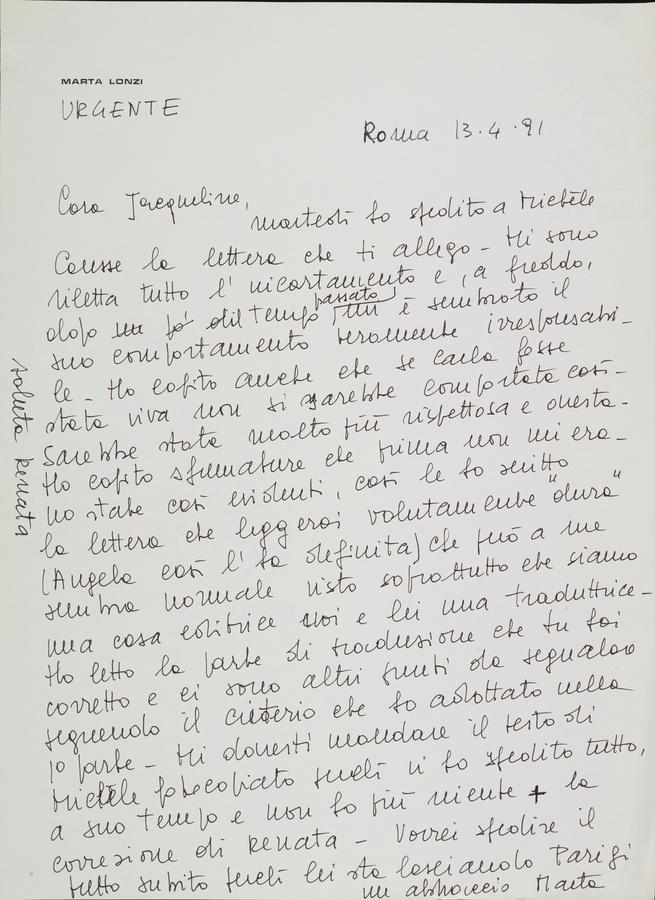 MARTA LONZI
URGENTE
Roma 13.4.91
Cara Jacqueline,
martedì ho spedito a Michèle
Causse la lettera che ti allego - Mi sono
riletta tutto l'incartamento e, a freddo,
dopo un po' di tempo passato mi è sembrato il
suo comportamento veramente irresponsabi-
le - Ho capito anche che se Carla fosse
stata viva non si sarebbe comportata così -
Sarebbe stata molto più rispettosa e onesta -
Ho capito sfumature che prima non mi era-
no state così evidenti, così le ho scritto
la lettera che leggerai volutamente "dura"
(Angela così l'ha definita) che però a me
sembra normale visto soprattutto che siamo
una casa editrice noi e lei una traduttrice -
Ho letto la parte di traduzione che tu hai
corretto e ci sono altri punti da segnalare
seguendo il criterio che ho adottato nella
1º parte - Mi dovresti mandare il testo di
Michèle fotocopiato perché vi ho spedito tutto,
a suo tempo e non ho più niente + la
correzione di Renata - Vorrei spedire il
tutto subito perché lei sta lasciando Parigi
un abbraccio Marta
saluta Renata